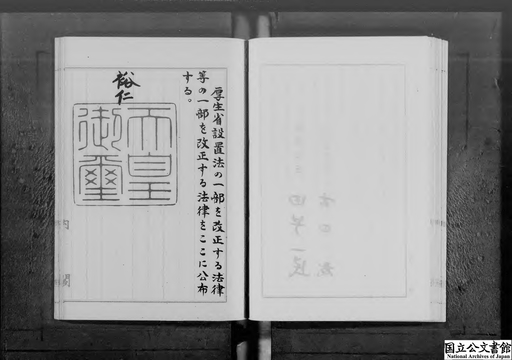 厚生省設置法の一部を改正する法律
等の一部を改正する法律をここに公布
する。
裕仁
天皇
御璽
内閣
国立公文書館
National Archives of Japan